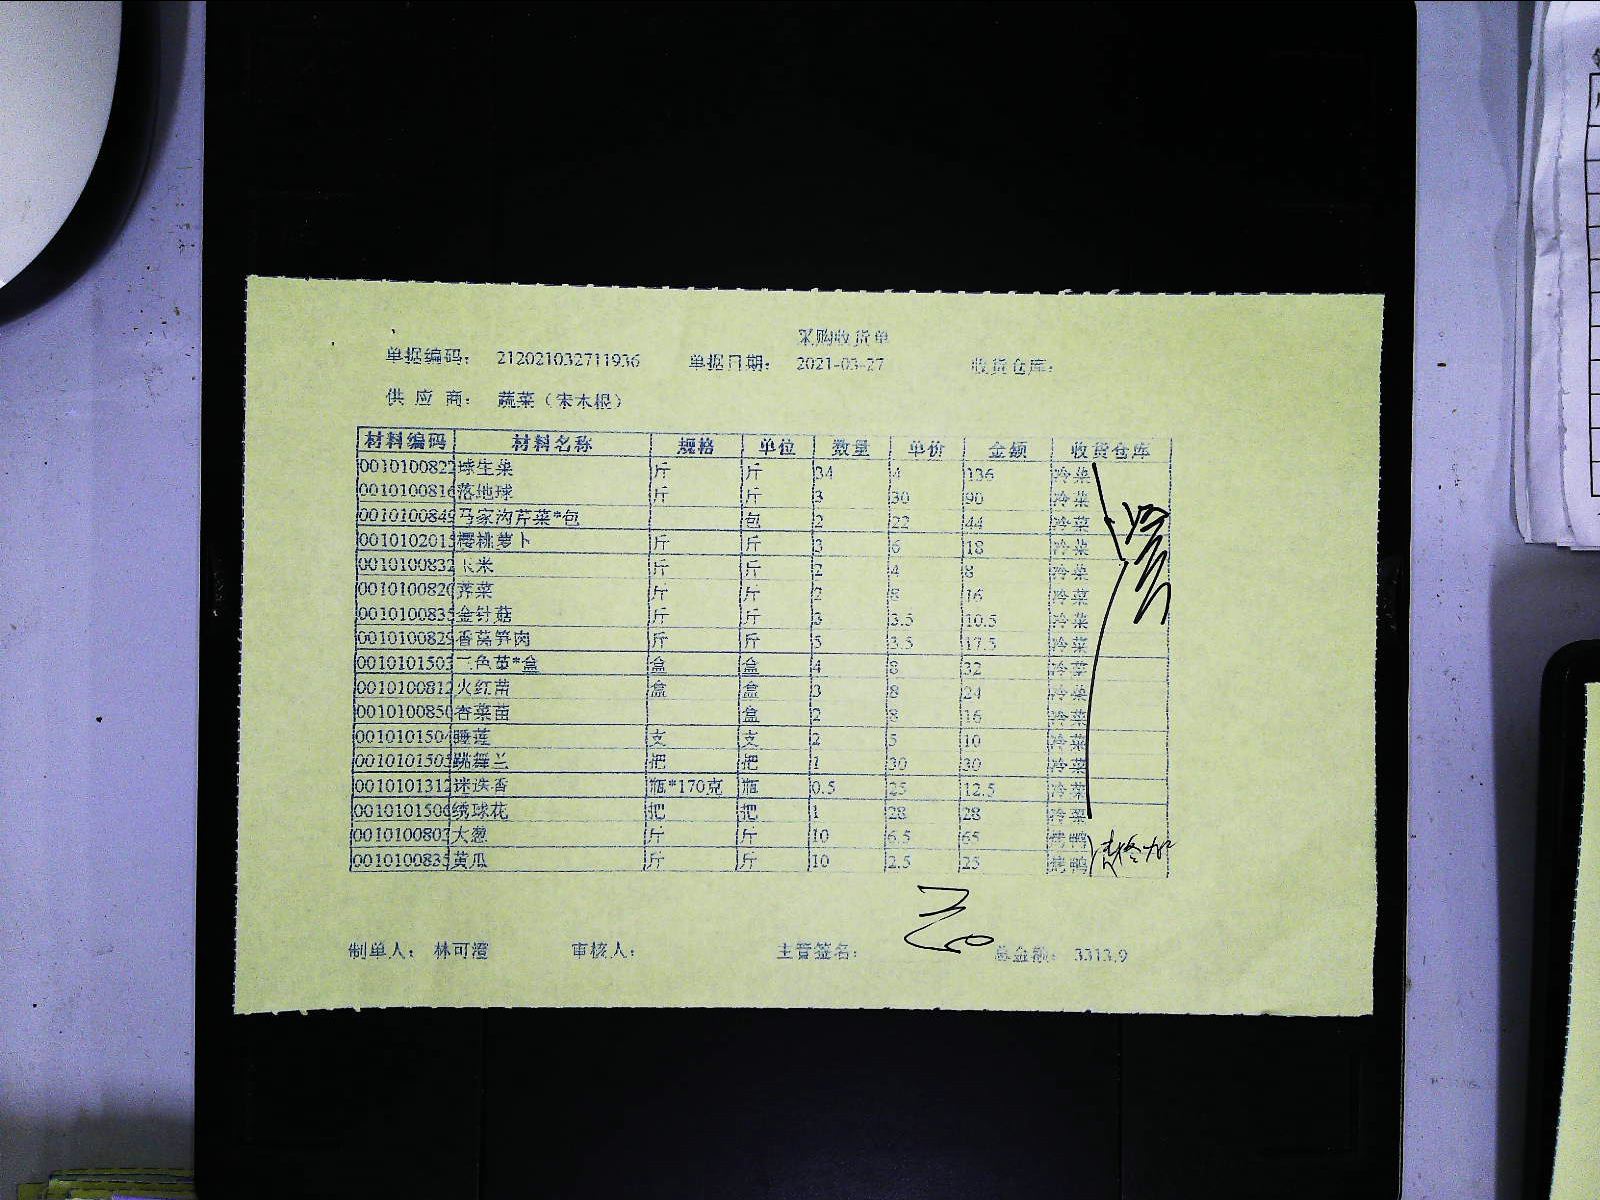 采购收货单
单据编码： 212021032711936 单据日期： 2021-03-27 收货仓库：
供 应 商： 蔬菜（宋木根）
材料编码 材料名称 规格 单位 数量 单价 金额 收货仓库
0010100822 球生菜 斤 斤 34 4 136 冷菜
0010100816 落地球 斤 斤 3 30 90 冷菜
0010100849 马家沟芹菜*包 包 2 22 44 冷菜
0010102015 樱桃萝卜 斤 斤 3 6 18 冷菜
0010100832 玉米 斤 斤 2 4 8 冷菜
0010100820 荠菜 斤 斤 2 8 16 冷菜
0010100835 金针菇 斤 斤 3 3.5 10.5 冷菜
0010100829 香莴笋肉 斤 斤 5 3.5 17.5 冷菜
0010101503 三色堇*盒 盒 盒 4 8 32 冷菜
0010100812 火红苗 盒 盒 3 8 24 冷菜
0010100850 香菜苗 盒 2 8 16 冷菜
0010101504 睡莲 支 支 2 5 10 冷菜
0010101505 跳舞兰 把 把 1 30 30 冷菜
0010101312 迷迭香 瓶*170克 瓶 0.5 25 12.5 冷菜
0010101506 绣球花 把 把 1 28 28 冷菜
0010100803 大葱 斤 斤 10 6.5 65 烤鸭
0010100835 黄瓜 斤 斤 10 2.5 25 烤鸭
制单人： 林可澄 审核人： 主管签名： 总金额： 3313.9